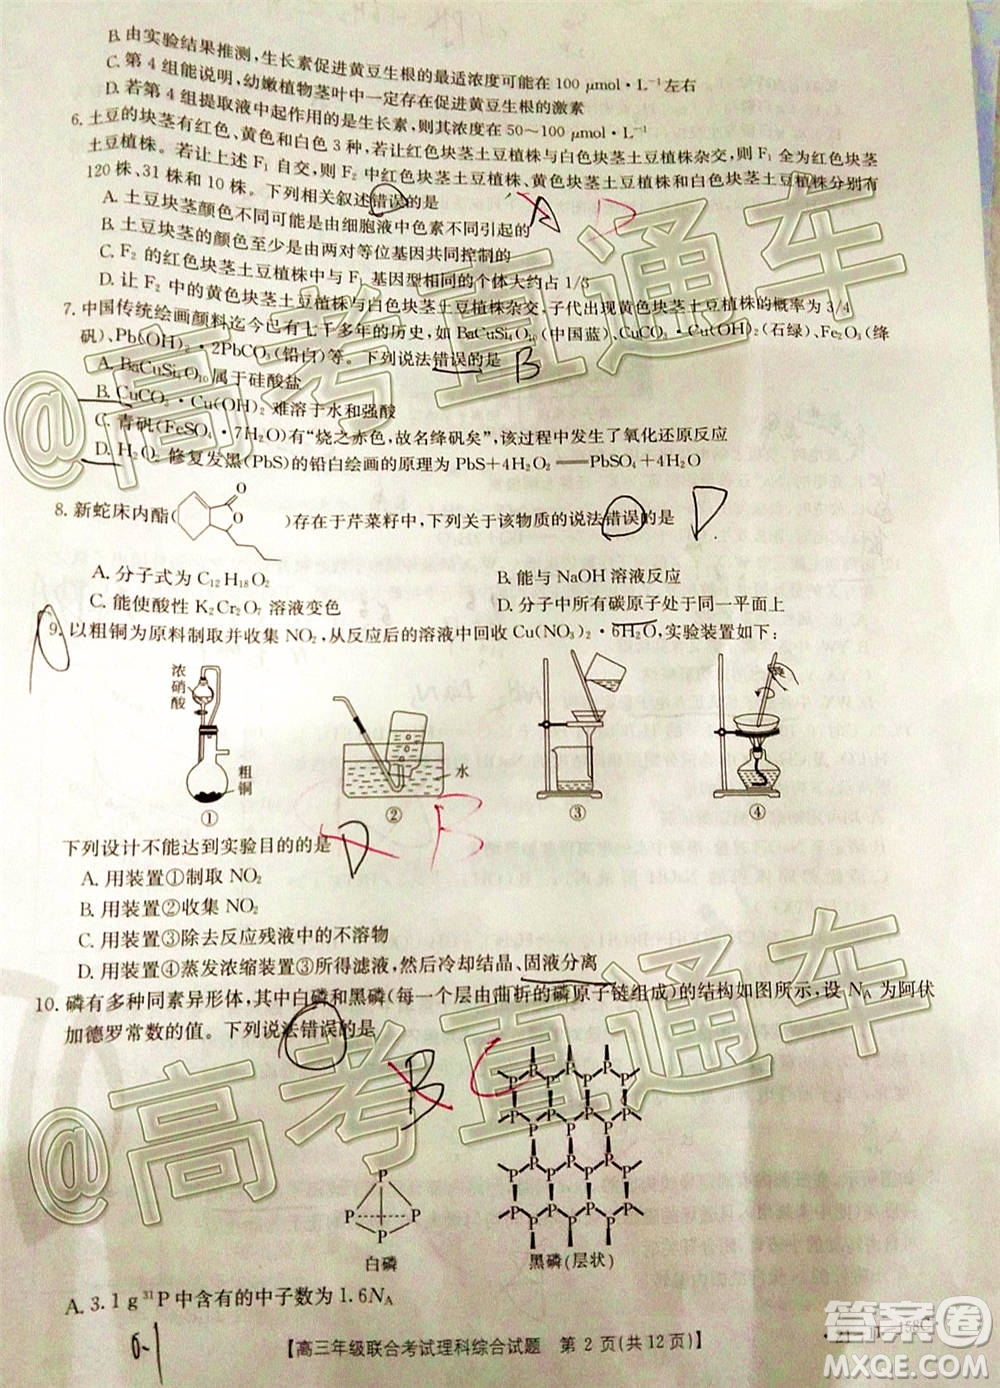 B. 由实验结果推测,生长素促进黄豆生根的最适浓度可能在 100 μmol·L⁻¹左右
C. 第 4 组能说明,幼嫩植物茎叶中一定存在促进黄豆生根的激素
D. 若第 4 组提取液中起作用的是生长素,则其浓度在 50～100 μmol·L⁻¹
6. 土豆的块茎有红色、黄色和白色 3 种,若让红色块茎土豆植株与白色块茎土豆植株杂交,则 F₁ 全为红色块茎
土豆植株。若让上述 F₁ 自交,则 F₂ 中红色块茎土豆植株、黄色块茎土豆植株和白色块茎土豆植株分别有
120 株、31 株和 10 株。下列相关叙述错误的是
A. 土豆块茎颜色不同可能是由细胞液中色素不同引起的
B. 土豆块茎的颜色至少是由两对等位基因共同控制的
C. F₂ 的红色块茎土豆植株中,与 F₁ 基因型相同的个体大约占 1/3
D. 让 F₂ 中的黄色块茎土豆植株与白色块茎土豆植株杂交,子代出现黄色块茎土豆植株的概率为 3/4
7. 中国传统绘画颜料迄今已有七千多年的历史,如 BaCuSi₄O₁₀(中国蓝)、CuCO₃·Cu(OH)₂(石绿)、Fe₂O₃(绛
矾)、Pb(OH)₂·2PbCO₃(铅白)等。下列说法错误的是
A. BaCuSi₄O₁₀属于硅酸盐
B. CuCO₃·Cu(OH)₂难溶于水和强酸
C. 青矾(FeSO₄·7H₂O)有“烧之赤色,故名绛矾矣”,该过程中发生了氧化还原反应
D. H₂O₂ 修复发黑(PbS)的铅白绘画的原理为 PbS+4H₂O₂══PbSO₄+4H₂O
8. 新蛇床内酯( O O )存在于芹菜籽中,下列关于该物质的说法错误的是
A. 分子式为 C₁₂H₁₈O₂
B. 能与 NaOH 溶液反应
C. 能使酸性 K₂Cr₂O₇ 溶液变色
D. 分子中所有碳原子处于同一平面上
9. 以粗铜为原料制取并收集 NO₂,从反应后的溶液中回收 Cu(NO₃)₂·6H₂O,实验装置如下:
浓硝酸
粗铜
水
① ② ③ ④
下列设计不能达到实验目的的是
A. 用装置①制取 NO₂
B. 用装置②收集 NO₂
C. 用装置③除去反应残液中的不溶物
D. 用装置④蒸发浓缩装置③所得滤液,然后冷却结晶、固液分离
10. 磷有多种同素异形体,其中白磷和黑磷(每一个层由曲折的磷原子链组成)的结构如图所示,设 Nₐ 为阿伏
加德罗常数的值。下列说法错误的是
白磷
黑磷(层状)
A. 3.1 g ³¹P 中含有的中子数为 1.6Nₐ
【高三年级联合考试理科综合试题 第 2 页(共 12 页)】
@高考直通车
@高考直通车
答案圈
MXQE.COM